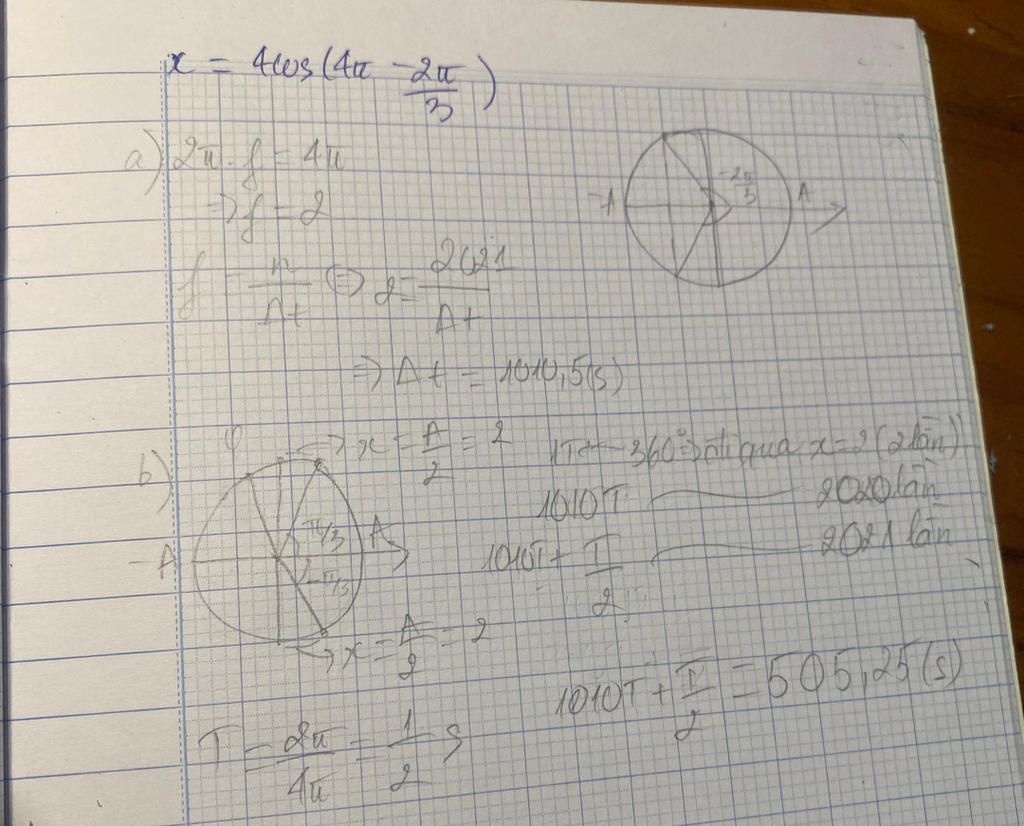 x = 4cos(4π - 2π/3)
a) 2π.f = 4π
⇒ f = 2
f = n/Δt ⇔ 2 = 2021/Δt
⇒ Δt = 1010,5(s)
-A
-2π/3
A
b)
φ
→ x = A/2 = 2
-A
π/3
-π/3
A
→ x = A/2 = 2
T = 2π/4π = 1/2 s
1T ← 360° ⇒ đi qua x = 2 (2 lần)
1010T — 2020 lần
1010T + T/2 — 2021 lần
1010T + T/2 = 505,25(s)